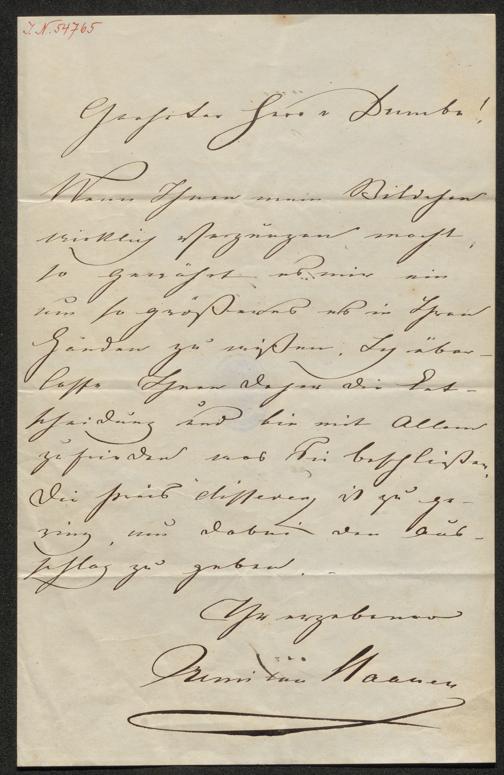 I.N. 54765
Geehrter Herr v Dumba!
Wenn Ihnen mein Bildchen
wirklich Vergnügen macht,
so gewährt es mir ein
um so größeres es in Ihren
Händen zu wißen. Ich über-
lasse Ihnen daher die Ent-
scheidung und bin mit Allem
zufrieden was Sie beschließen.
Die Preis differenz ist zu ge-
ring, um dabei den Aus-
schlag zu geben.
Ihr ergebener
Remi van Haanen